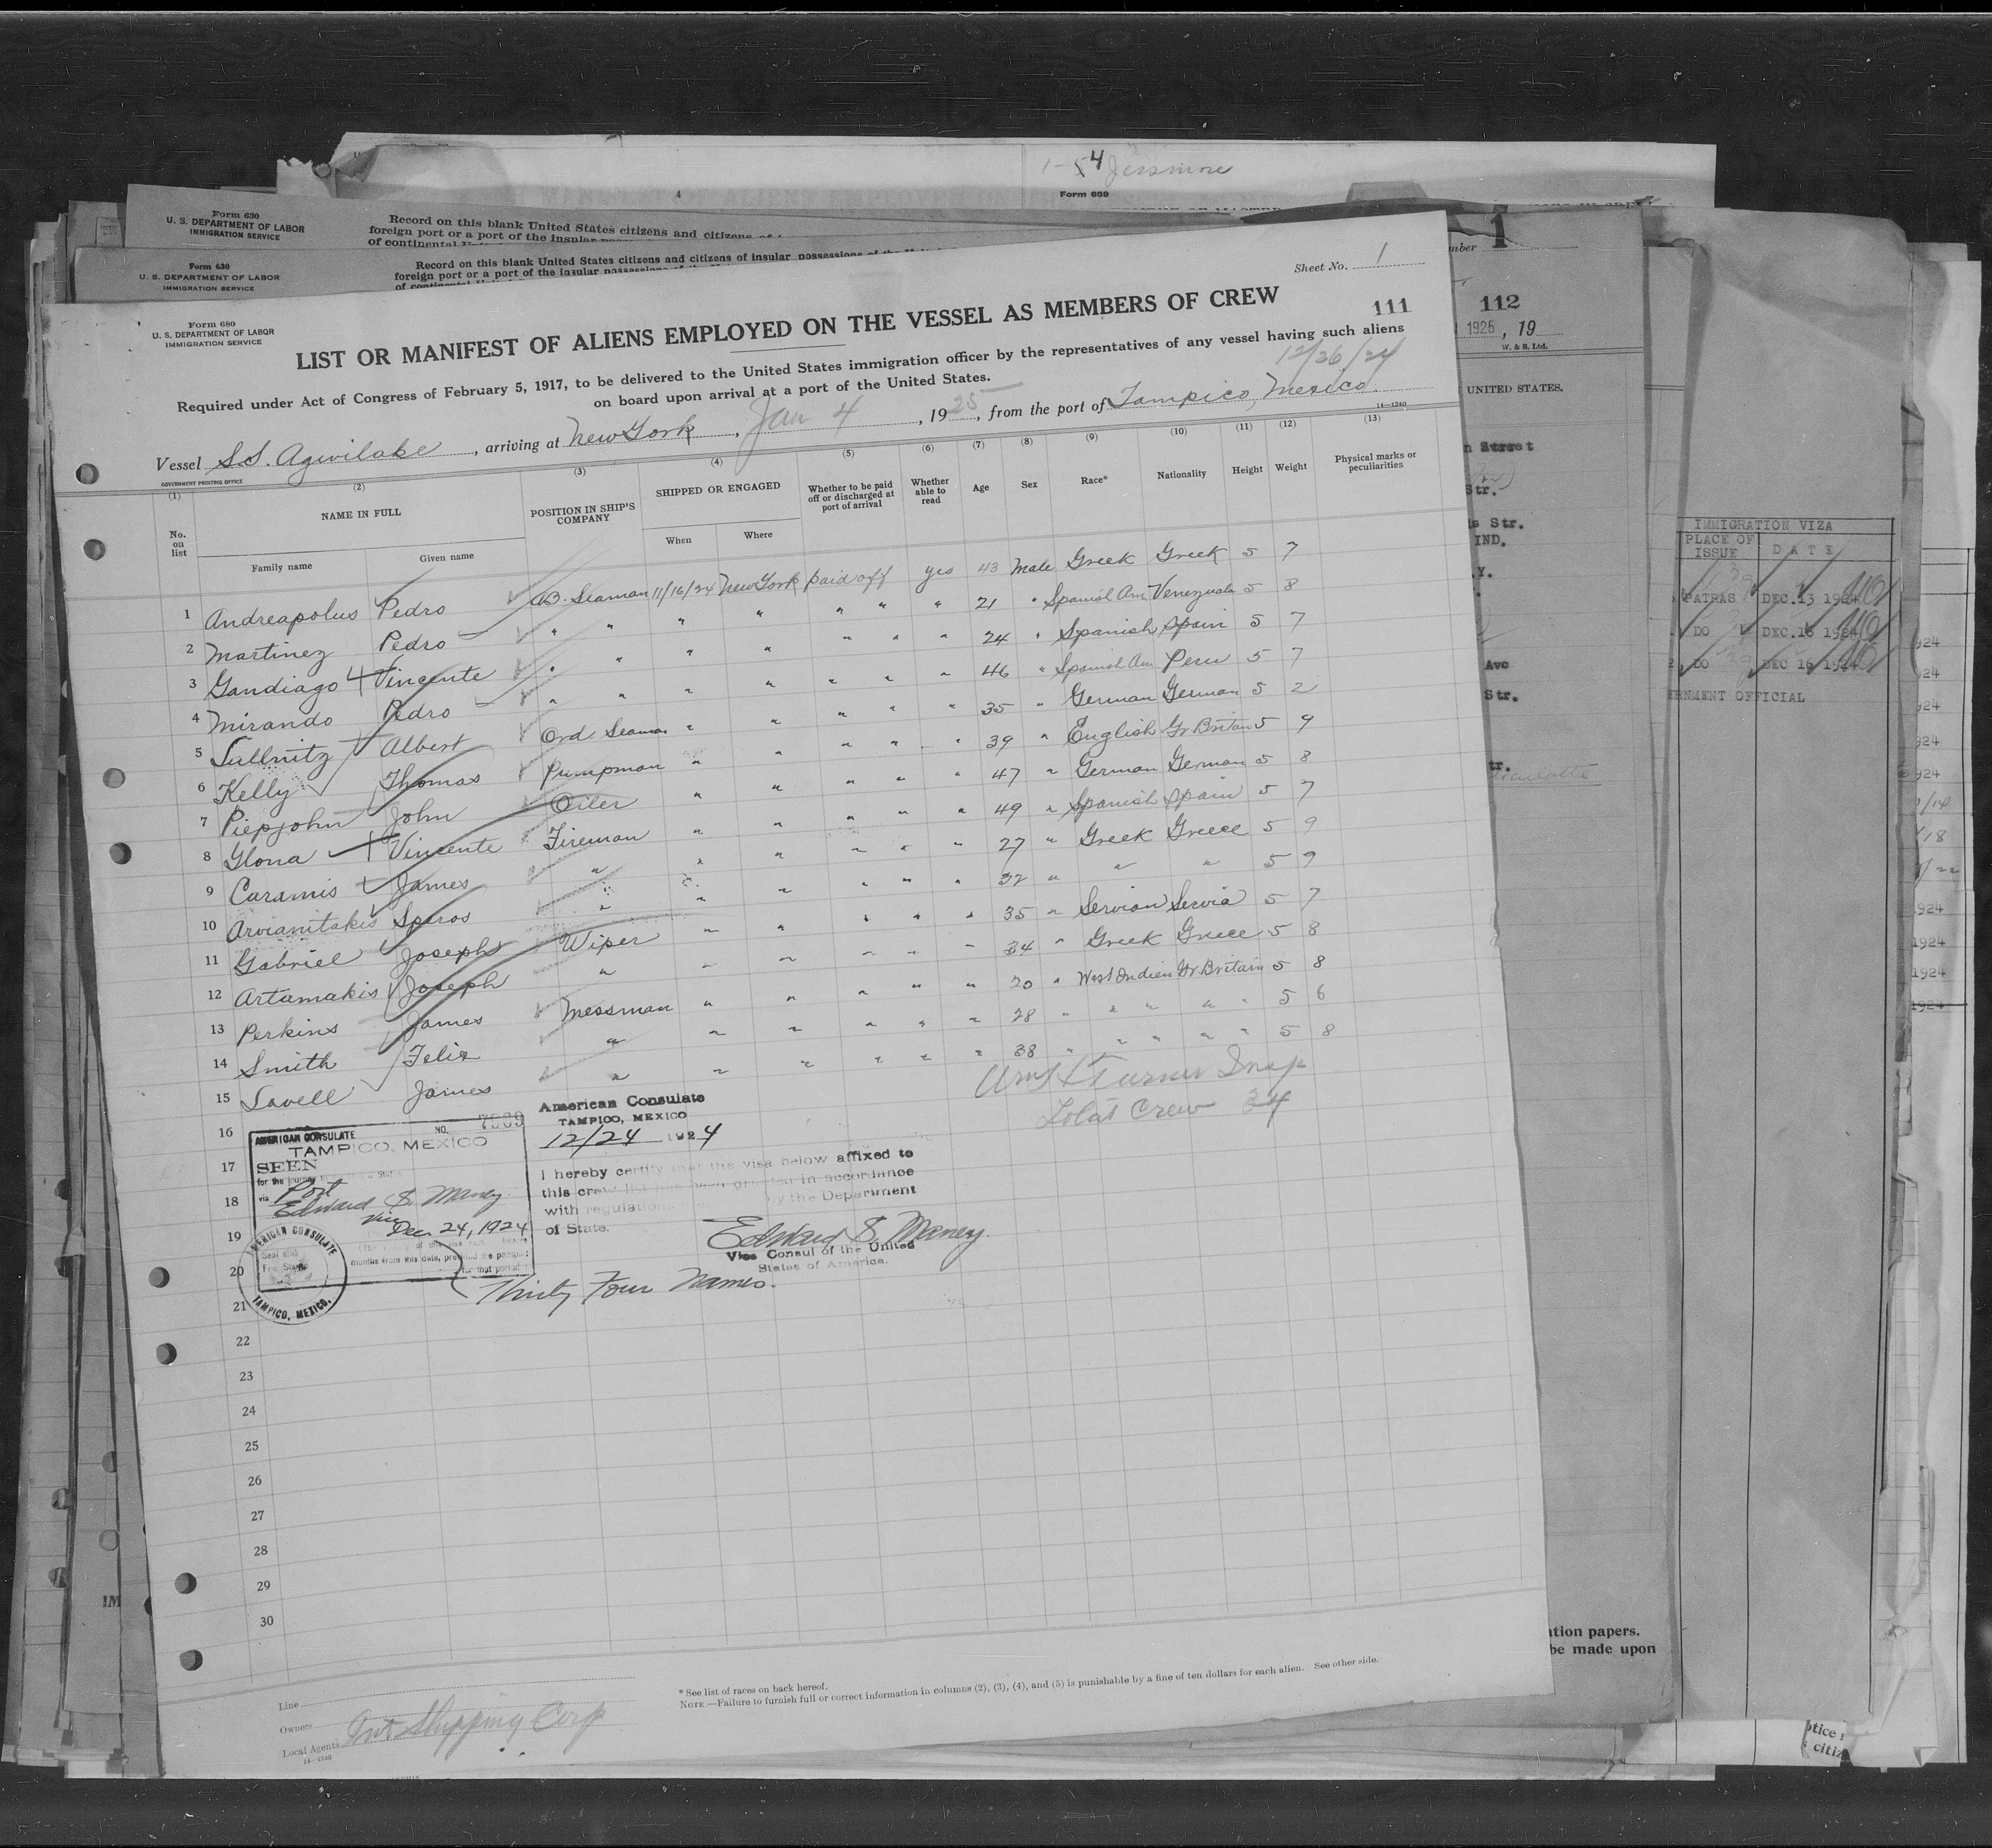 1-54 Jessmore
4
Form 689
Form 630
U. S. DEPARTMENT OF LABOR
IMMIGRATION SERVICE
Record on this blank United States citizens and citizens of
foreign port or a port of the insular
of continental
Form 630
U. S. DEPARTMENT OF LABOR
IMMIGRATION SERVICE
Record on this blank United States citizens and citizens of insular possessions of the
foreign port or a port of the insular possessions of the
Sheet No. 1
Form 680
U. S. DEPARTMENT OF LABOR
IMMIGRATION SERVICE
LIST OR MANIFEST OF ALIENS EMPLOYED ON THE VESSEL AS MEMBERS OF CREW
111
Required under Act of Congress of February 5, 1917, to be delivered to the United States immigration officer by the representatives of any vessel having such aliens
on board upon arrival at a port of the United States.
12/26/24
Vessel S.S. Agwilake, arriving at New York, Jan 4, 1925, from the port of Tampico, Mexico
GOVERNMENT PRINTING OFFICE
14—1240
(1) (2) (3) (4) (5) (6) (7) (8) (9) (10) (11) (12) (13)
No. on list NAME IN FULL POSITION IN SHIP'S COMPANY SHIPPED OR ENGAGED Whether to be paid off or discharged at port of arrival Whether able to read Age Sex Race* Nationality Height Weight Physical marks or peculiarities
Family name Given name When Where
1 Andreapolus Pedro AB. Seaman 11/16/24 New York paid off yes 43 Male Greek Greek 5 7
2 Martinez Pedro " " " " " " " 21 " Spanish Am Venezuala 5 8
3 Gandiago Vincente " " " " " " " 24 " Spanish Spain 5 7
4 Mirando Pedro " " " " " " " 46 " Spanish Am Peru 5 7
5 Sullnitz Albert Ord Seaman " " " " " 35 " German German 5 2
6 Kelly Thomas Pumpman " " " " " 39 " English Gr Britan 5 9
7 Piepjohn John Oiler " " " " " 47 " German German 5 8
8 Glona Vincente Fireman " " " " " 49 " Spanish Spain 5 7
9 Caramis James " " " " " " 27 " Greek Greece 5 9
10 Arvanitakis Spiros " " " " " " 32 " " " 5 9
11 Gabriel Joseph Wiper " " " " " 35 " Servian Servia 5 7
12 Artamakis Joseph " " " " " " 34 " Greek Greece 5 8
13 Perkins James Messman " " " " " 20 " West Indien Gr Britain 5 8
14 Smith Felix " " " " " " 28 " " " " " 5 6
15 Lovell James " " " " " " 38 " " " " " 5 8
16
17
18
19
20
21
22
23
24
25
26
27
28
29
30
Turner Insp
Total Crew 34
AMERICAN CONSULATE NO. 7989
TAMPICO, MEXICO
SEEN
for the journey
via Port
Edward S. Maney
Vice
Dec 24, 1924
months from this date, provided the passport
for that period
AMERICAN CONSULATE
TAMPICO, MEXICO.
American Consulate
TAMPICO, MEXICO
12/24 1924
I hereby certify that the visa below affixed to
this crew list has been granted in accordance
with regulations by the Department
of State.
Edward S. Maney
Vice Consul of the United
States of America.
Thirty Four Names.
* See list of races on back hereof.
NOTE.—Failure to furnish full or correct information in columns (2), (3), (4), and (5) is punishable by a fine of ten dollars for each alien. See other side.
Line
Owners
Local Agents Int Shipping Corp
14—1240
1
112
1925, 19
W. & S. Ltd.
UNITED STATES.
Street
Str.
Str.
IND.
Y.
Ave
Str.
IMMIGRATION VIZA
PLACE OF ISSUE DATE
PATRAS DEC.13 1924
DO DEC.16 1924
DO DEC 16 1924
ERNMENT OFFICIAL
924
924
924
924
924
/18
924
1924
1924
1924
tion papers.
be made upon
otice
citiz
IM